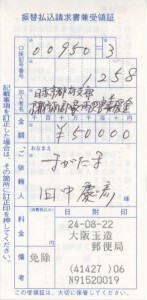 振替払込請求書兼受領証
口座記号番号
00950=3
1258
加入者名
日本赤十字社
金額
千百十万千百十円
¥50000
おなまえ
ご依頼人
まがたま
田中慶彦
料金
(消費税込み)
円
日附印
24-08-22
大阪玉造
郵便局
備考
免除
(41427)06
N91520019
この受領証は、大切に保管してください。
記載事項を訂正した場合は、その箇所に訂正印を押してください。